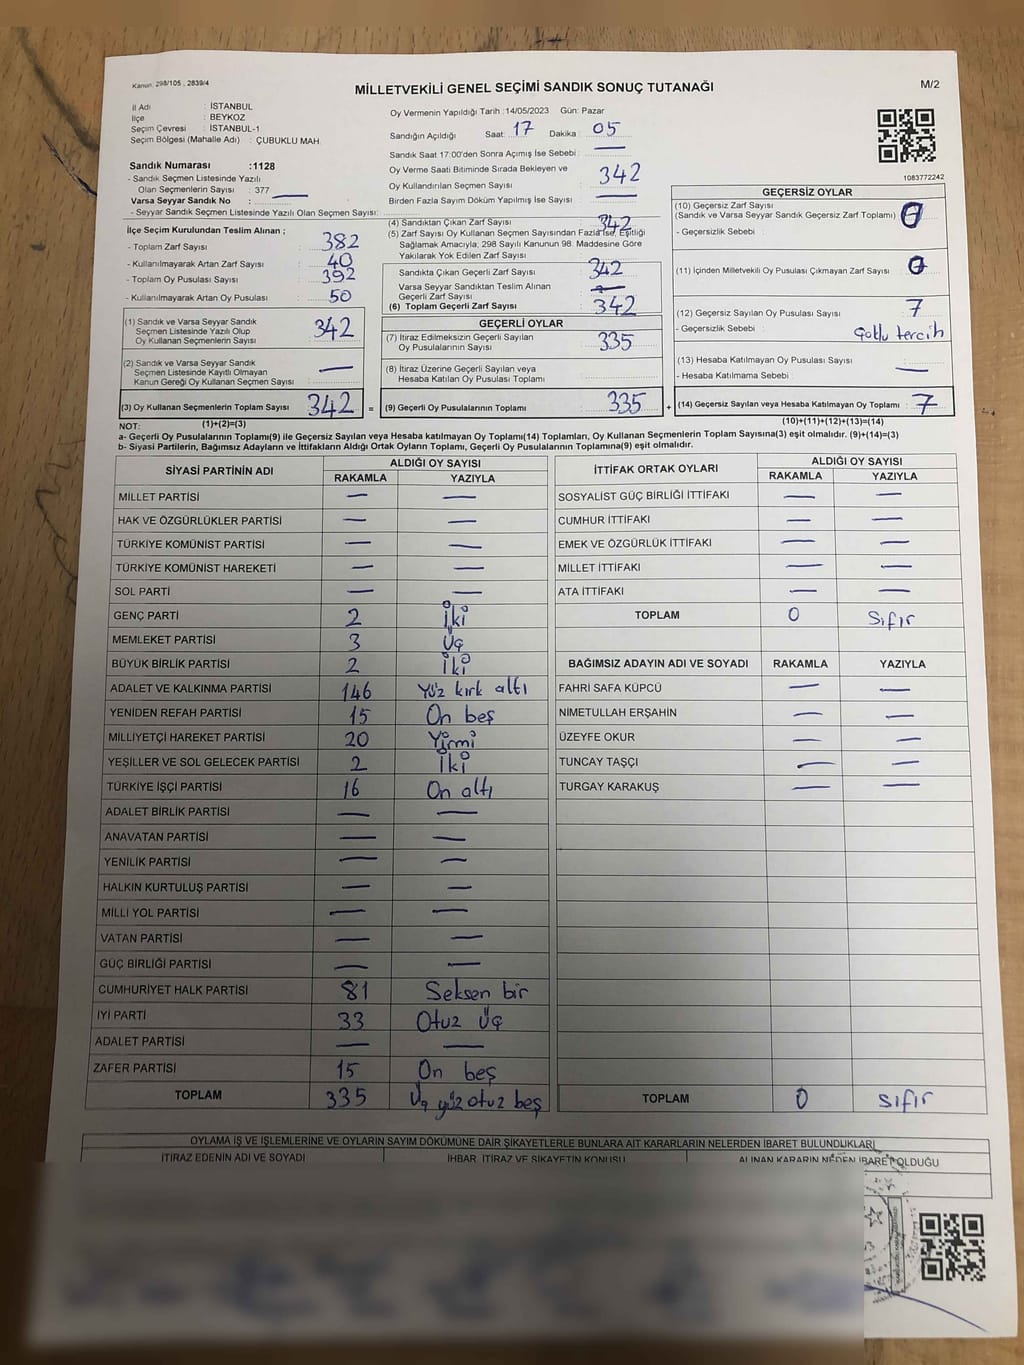 Kanun: 298/105 , 2839/4
MİLLETVEKİLİ GENEL SEÇİMİ SANDIK SONUÇ TUTANAĞI
M/2
İl Adı : İSTANBUL
İlçe : BEYKOZ
Seçim Çevresi : İSTANBUL-1
Seçim Bölgesi (Mahalle Adı) : ÇUBUKLU MAH.
Sandık Numarası :1128
- Sandık Seçmen Listesinde Yazılı
Olan Seçmenlerin Sayısı : 377
Varsa Seyyar Sandık No : —
- Seyyar Sandık Seçmen Listesinde Yazılı Olan Seçmen Sayısı:
Oy Vermenin Yapıldığı Tarih :14/05/2023 Gün: Pazar
Sandığın Açıldığı Saat: 17 Dakika : 05
Sandık Saat 17:00'den Sonra Açımış İse Sebebi : —
Oy Verme Saati Bitiminde Sırada Bekleyen ve
Oy Kullandırılan Seçmen Sayısı : 342
Birden Fazla Sayım Döküm Yapılmış İse Sayısı : —
1083772242
İlçe Seçim Kurulundan Teslim Alınan ;
- Toplam Zarf Sayısı : 382
- Kullanılmayarak Artan Zarf Sayısı : 40
- Toplam Oy Pusulası Sayısı : 392
- Kullanılmayarak Artan Oy Pusulası : 50
(1) Sandık ve Varsa Seyyar Sandık
Seçmen Listesinde Yazılı Olup
Oy Kullanan Seçmenlerin Sayısı : 342
(2) Sandık ve Varsa Seyyar Sandık
Seçmen Listesinde Kayıtlı Olmayan
Kanun Gereği Oy Kullanan Seçmen Sayısı : —
(3) Oy Kullanan Seçmenlerin Toplam Sayısı : 342 =
(1)+(2)=(3)
(4) Sandıktan Çıkan Zarf Sayısı : 342
(5) Zarf Sayısı Oy Kullanan Seçmen Sayısından Fazla İse, Eşitliği
Sağlamak Amacıyla, 298 Sayılı Kanunun 98. Maddesine Göre
Yakılarak Yok Edilen Zarf Sayısı :
Sandıkta Çıkan Geçerli Zarf Sayısı : 342
Varsa Seyyar Sandıktan Teslim Alınan
Geçerli Zarf Sayısı : —
(6) Toplam Geçerli Zarf Sayısı : 342
GEÇERLİ OYLAR
(7) İtiraz Edilmeksizin Geçerli Sayılan
Oy Pusulalarının Sayısı : 335
(8) İtiraz Üzerine Geçerli Sayılan veya
Hesaba Katılan Oy Pusulası Toplamı :
(9) Geçerli Oy Pusulalarının Toplamı : 335 +
GEÇERSİZ OYLAR
(10) Geçersiz Zarf Sayısı
(Sandık ve Varsa Seyyar Sandık Geçersiz Zarf Toplamı) :
- Geçersizlik Sebebi :
(11) İçinden Milletvekili Oy Pusulası Çıkmayan Zarf Sayısı : 0
(12) Geçersiz Sayılan Oy Pusulası Sayısı : 7
- Geçersizlik Sebebi : Çoklu tercih
(13) Hesaba Katılmayan Oy Pusulası Sayısı :
- Hesaba Katılmama Sebebi : —
(14) Geçersiz Sayılan veya Hesaba Katılmayan Oy Toplamı : 7
(10)+(11)+(12)+(13)=(14)
NOT:
a- Geçerli Oy Pusulalarının Toplamı(9) ile Geçersiz Sayılan veya Hesaba katılmayan Oy Toplamı(14) Toplamları, Oy Kullanan Seçmenlerin Toplam Sayısına(3) eşit olmalıdır. (9)+(14)=(3)
b- Siyasi Partilerin, Bağımsız Adayların ve İttifakların Aldığı Ortak Oyların Toplamı, Geçerli Oy Pusulalarının Toplamına(9) eşit olmalıdır.
SİYASİ PARTİNİN ADI ALDIĞI OY SAYISI
RAKAMLA YAZIYLA
MİLLET PARTİSİ — —
HAK VE ÖZGÜRLÜKLER PARTİSİ — —
TÜRKİYE KOMÜNİST PARTİSİ — —
TÜRKİYE KOMÜNİST HAREKETİ — —
SOL PARTİ — —
GENÇ PARTİ 2 İki
MEMLEKET PARTİSİ 3 Üç
BÜYÜK BİRLİK PARTİSİ 2 İki
ADALET VE KALKINMA PARTİSİ 146 Yüz kırk altı
YENİDEN REFAH PARTİSİ 15 On beş
MİLLİYETÇİ HAREKET PARTİSİ 20 Yirmi
YEŞİLLER VE SOL GELECEK PARTİSİ 2 İki
TÜRKİYE İŞÇİ PARTİSİ 16 On altı
ADALET BİRLİK PARTİSİ — —
ANAVATAN PARTİSİ — —
YENİLİK PARTİSİ — —
HALKIN KURTULUŞ PARTİSİ — —
MİLLİ YOL PARTİSİ — —
VATAN PARTİSİ — —
GÜÇ BİRLİĞİ PARTİSİ — —
CUMHURİYET HALK PARTİSİ 81 Seksen bir
İYİ PARTİ 33 Otuz Üç
ADALET PARTİSİ — —
ZAFER PARTİSİ 15 On beş
TOPLAM 335 Üç yüz otuz beş
İTTİFAK ORTAK OYLARI ALDIĞI OY SAYISI
RAKAMLA YAZIYLA
SOSYALİST GÜÇ BİRLİĞİ İTTİFAKI — —
CUMHUR İTTİFAKI — —
EMEK VE ÖZGÜRLÜK İTTİFAKI — —
MİLLET İTTİFAKI — —
ATA İTTİFAKI — —
TOPLAM 0 Sıfır
BAĞIMSIZ ADAYIN ADI VE SOYADI RAKAMLA YAZIYLA
FAHRİ SAFA KÜPCÜ — —
NİMETULLAH ERŞAHİN — —
ÜZEYFE OKUR — —
TUNCAY TAŞÇI — —
TURGAY KARAKUŞ — —
TOPLAM 0 Sıfır
OYLAMA İŞ VE İŞLEMLERİNE VE OYLARIN SAYIM DÖKÜMÜNE DAİR ŞİKAYETLERLE BUNLARA AİT KARARLARIN NELERDEN İBARET BULUNDUKLARI
İTİRAZ EDENİN ADI VE SOYADI İHBAR, İTİRAZ VE ŞİKAYETİN KONUSU ALINAN KARARIN NEDEN İBARET OLDUĞU